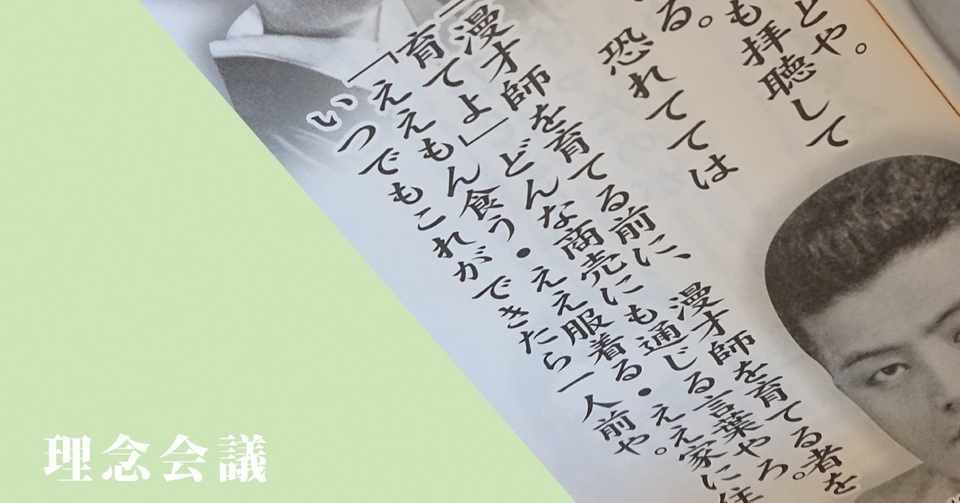 とや。
も拝聴して
る。
恐れては
「漫才師を育てる前に、漫才師を育てる者を
育てよ」どんな商売にも通じる言葉やろ。
「ええもん食う・ええ服着る・ええ家に住
いつでもこれができたら一人前や。
理念会議